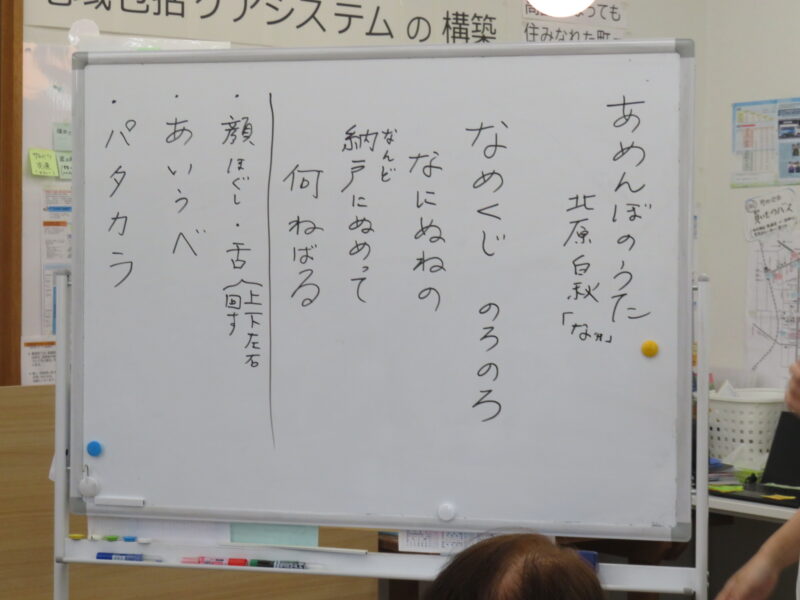 ケアシステムの構築
っても
住みなれた町
あめんぼのうた
北原白秋「な行」
なめくじ のろのろ
なにぬねの
納戸にぬめって
なんど
何ねばる
・顔ほぐし・舌(上下左右
回す
・あいうべ
・パタカラ